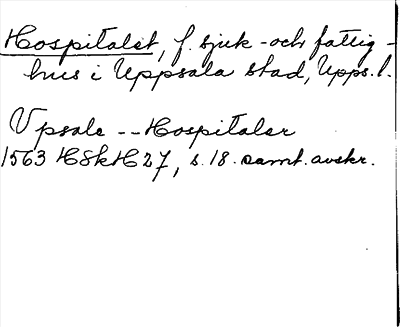 Hospitalet, f. sjuk- och fattig-
hus i Uppsala stad, Upps. l.
Vpsale -- Hospitaler
1563 HSkH27, s. 18. samt. avskr.